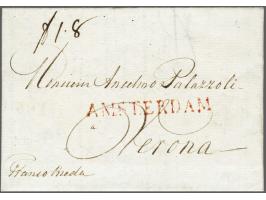 f 1.8
Monsieur Anselmo Palazzoli
AMSTERDAM
a
Verona
Franco Breda